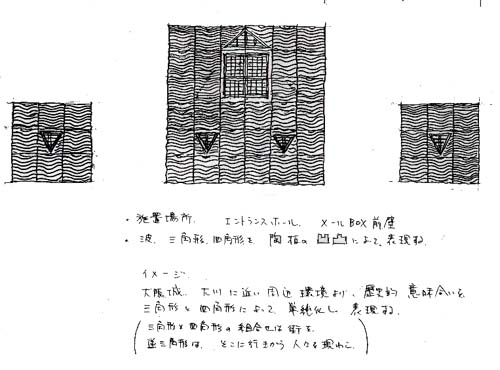 ・設置場所. エントランスホール. メールBOX前壁
・波. 三角形, 四角形を 陶板の凹凸によって, 表現ね.
イメージ
大阪城. 大川に近い周辺環境より, 歴史的 意味合いを
三角形と四角形によって, 単純化し 表現ね.
三角形と四角形の組合せは街を.
逆三角形は, そこに行きかう人々を現わし.